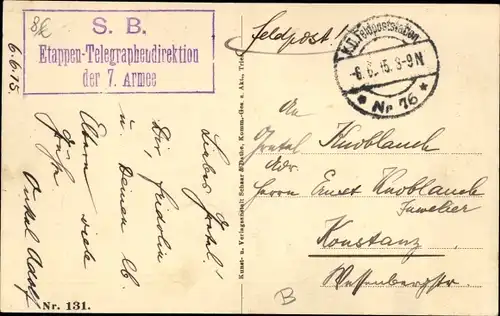 8£
S. B.
Etappen-Telegraphendirektion
der 7. Armee
6.6.15.
Feldpost!
K.D. Feldpoststation
-6.6.15. 8-9N
* Nr 76 *
Liebes Gretel!
Dir, Fridolin
u. Deinen lb.
Eltern viele
Grüße
Onkel Adolf
Kunst- u. Verlagsanstalt Schaar & Dathe, Komm.-Ges. a. Akt., Trier
An
Gretel Knoblauch
Adr.
Herrn Ernst Knoblauch
Juwelier
Konstanz
Wessenbergstr.
B
Nr. 131.